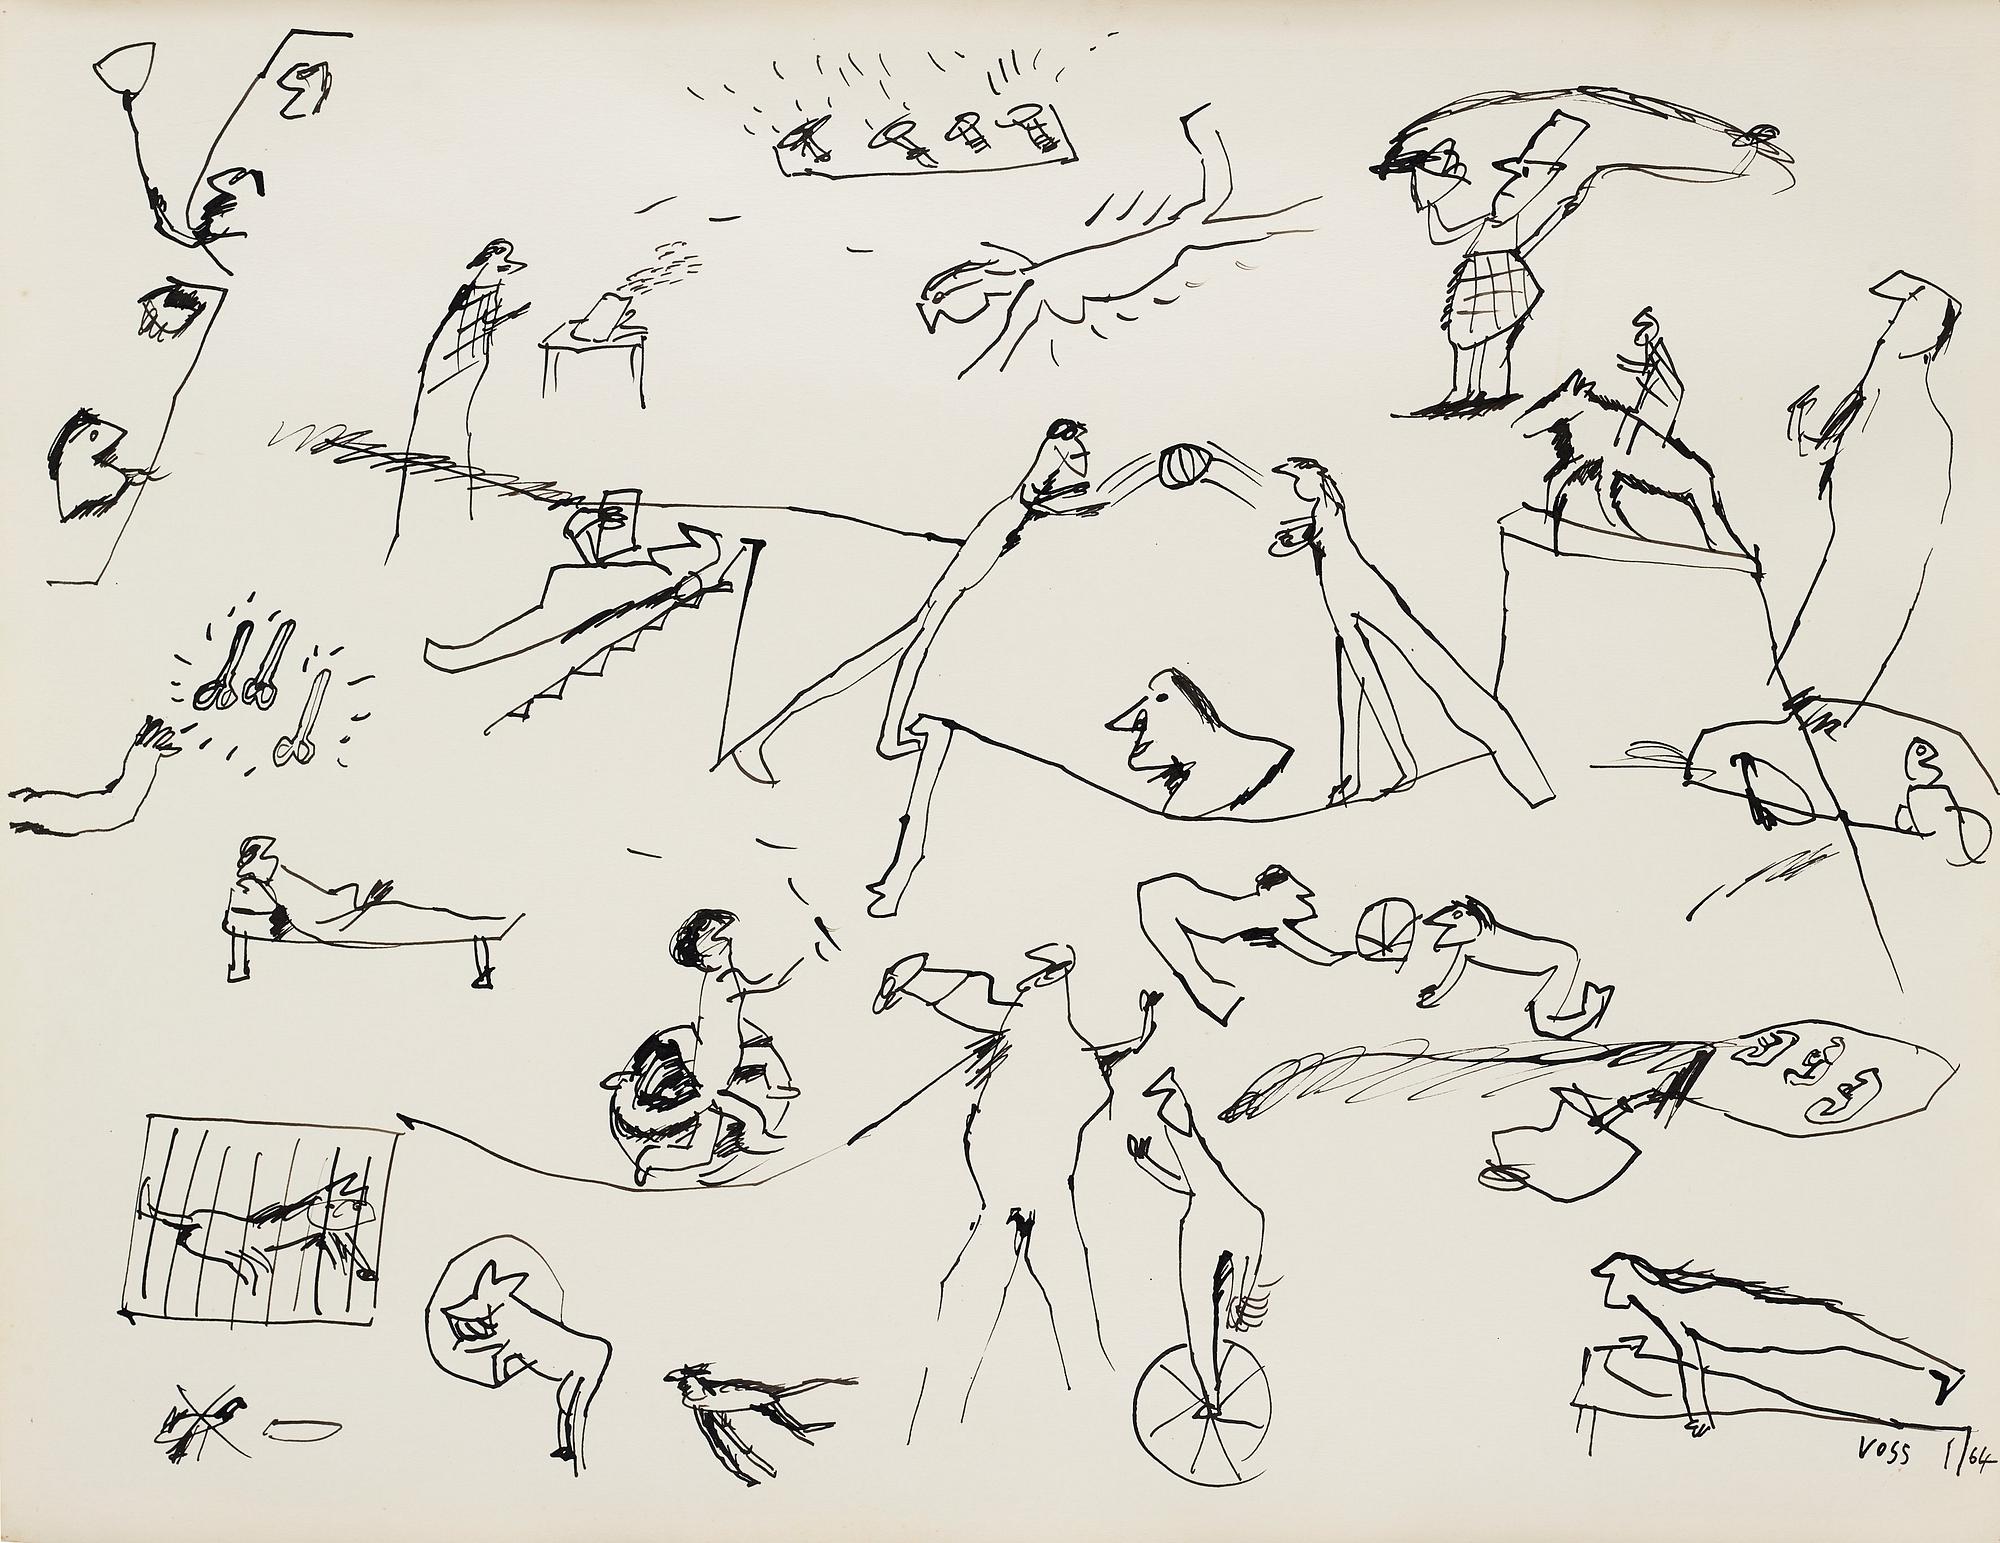 VOSS 1/64